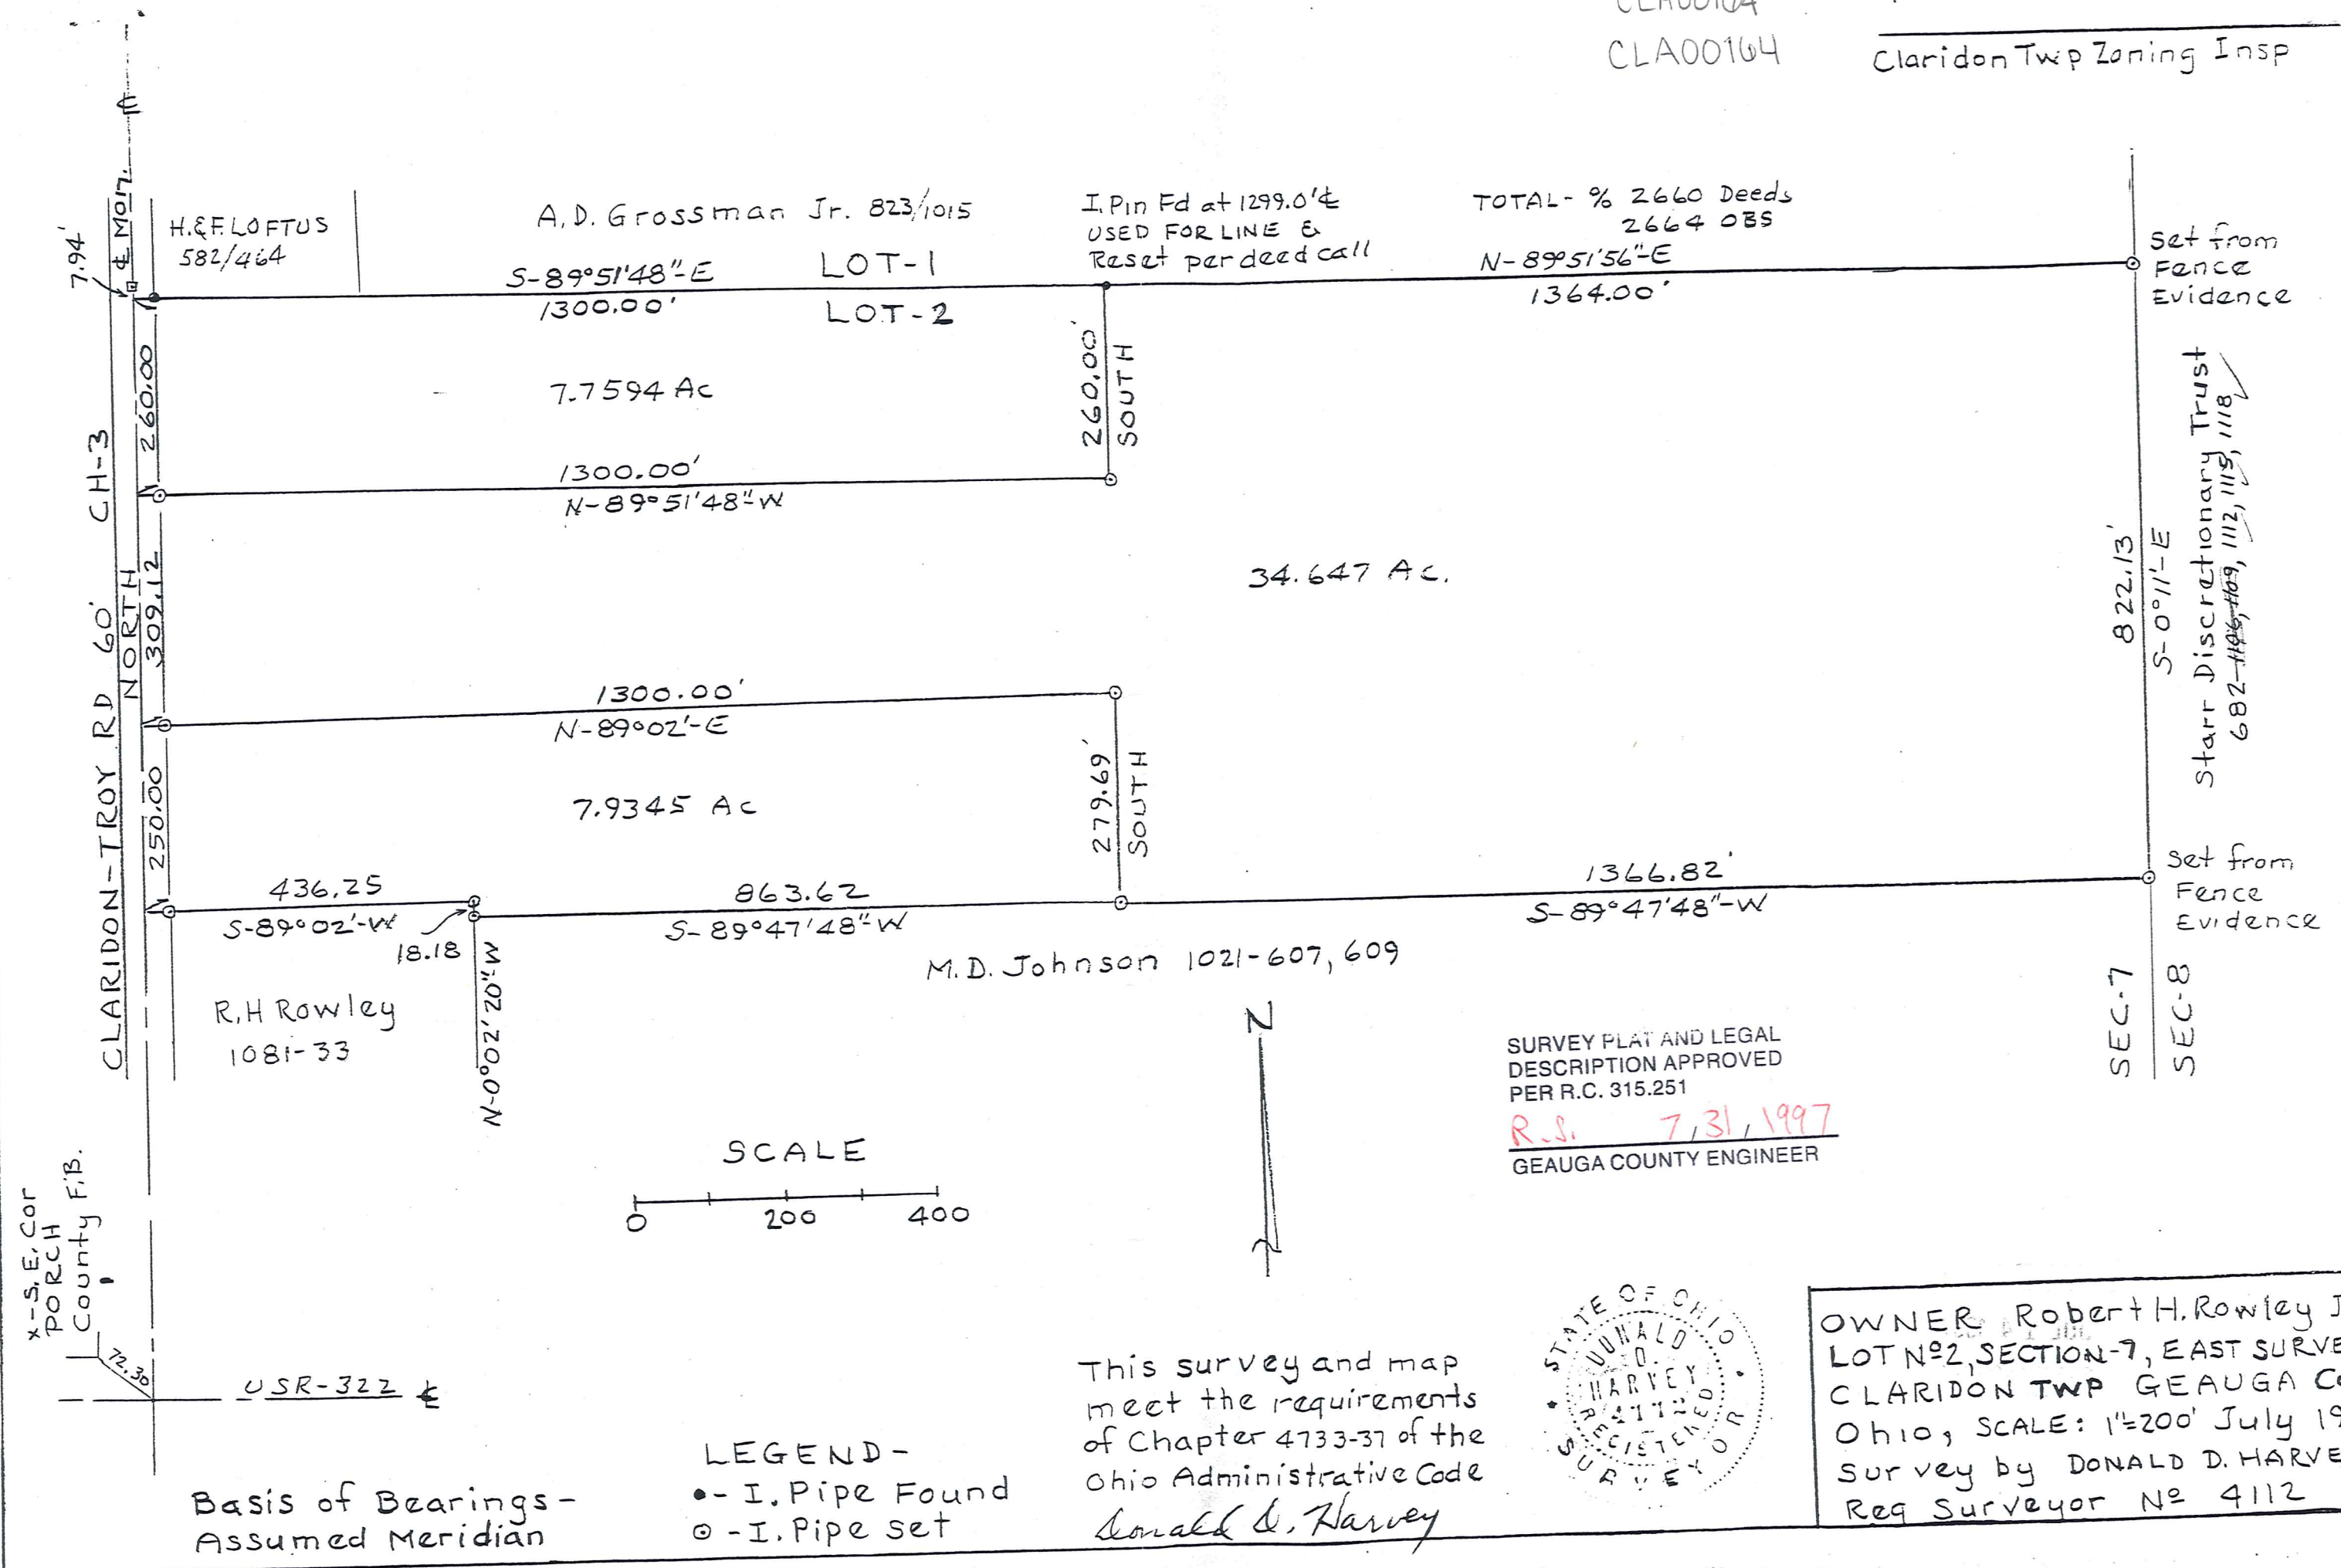 CLA00164
CLA00164
Claridon Twp Zoning Insp
7.94'
℄ MON.
H.&F. LOFTUS
582/464
A.D. Grossman Jr. 823/1015
S-89°51'48"-E
1300.00'
LOT-1
LOT-2
I.Pin Fd at 1299.0'±
USED FOR LINE &
Reset per deed call
TOTAL- % 2660 Deeds
2664 OBS
N-89°51'56"-E
1364.00'
Set from
Fence
Evidence
260.00
7.7594 Ac
260.00'
SOUTH
1300.00'
N-89°51'48"-W
CLARIDON-TROY RD 60' CH-3
NORTH
309.12
34.647 Ac.
822.13'
S-0°11'-E
Starr Discretionary Trust
682-1106, 1109, 1112, 1115, 1118
1300.00'
N-89°02'-E
250.00
7.9345 Ac
279.69'
SOUTH
436.25
S-89°02'-W
18.18
N-0°02'20"-W
863.62
S-89°47'48"-W
1366.82'
S-89°47'48"-W
Set from
Fence
Evidence
R.H Rowley
1081-33
M.D. Johnson 1021-607, 609
SEC-7
SEC-8
N
SURVEY PLAT AND LEGAL
DESCRIPTION APPROVED
PER R.C. 315.251
R.S. 7,31,1997
GEAUGA COUNTY ENGINEER
SCALE
0 200 400
x-S.E. Cor
PORCH
County F.B.
72.30
USR-322 ℄
Basis of Bearings-
Assumed Meridian
LEGEND-
●- I. Pipe Found
⊙ -I. Pipe set
This survey and map
meet the requirements
of Chapter 4733-37 of the
Ohio Administrative Code
Donald D. Harvey
STATE OF OHIO
DONALD
D.
HARVEY
REGISTERED
SURVEYOR
OWNER Robert H. Rowley J
LOT Nº2, SECTION-7, EAST SURVE
CLARIDON TWP GEAUGA Co
Ohio, SCALE: 1"=200' July 19
Survey by DONALD D. HARVE
Reg Surveyor Nº 4112